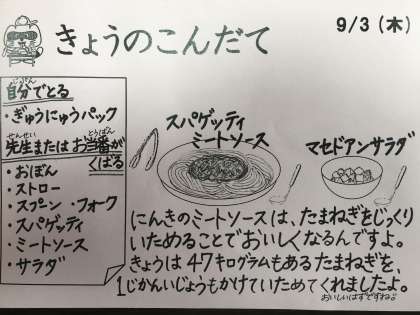 きょうのこんだて
9/3(木)
自分でとる
じぶん
・ぎゅうにゅうパック
せんせい とうばん
先生または お当番が
くばる
・おぼん
・ストロー
・スプーン・フォーク
・スパゲッティ
・ミートソース
・サラダ
スパゲッティ
ミートソース
マセドアンサラダ
にんきのミートソースは、たまねぎをじっくり
いためることでおいしくなるんですよ。
きょうは47キログラムもあるたまねぎを、
1じかんいじょうもかけていためてくれましたよ。
おいしいはずですねよ